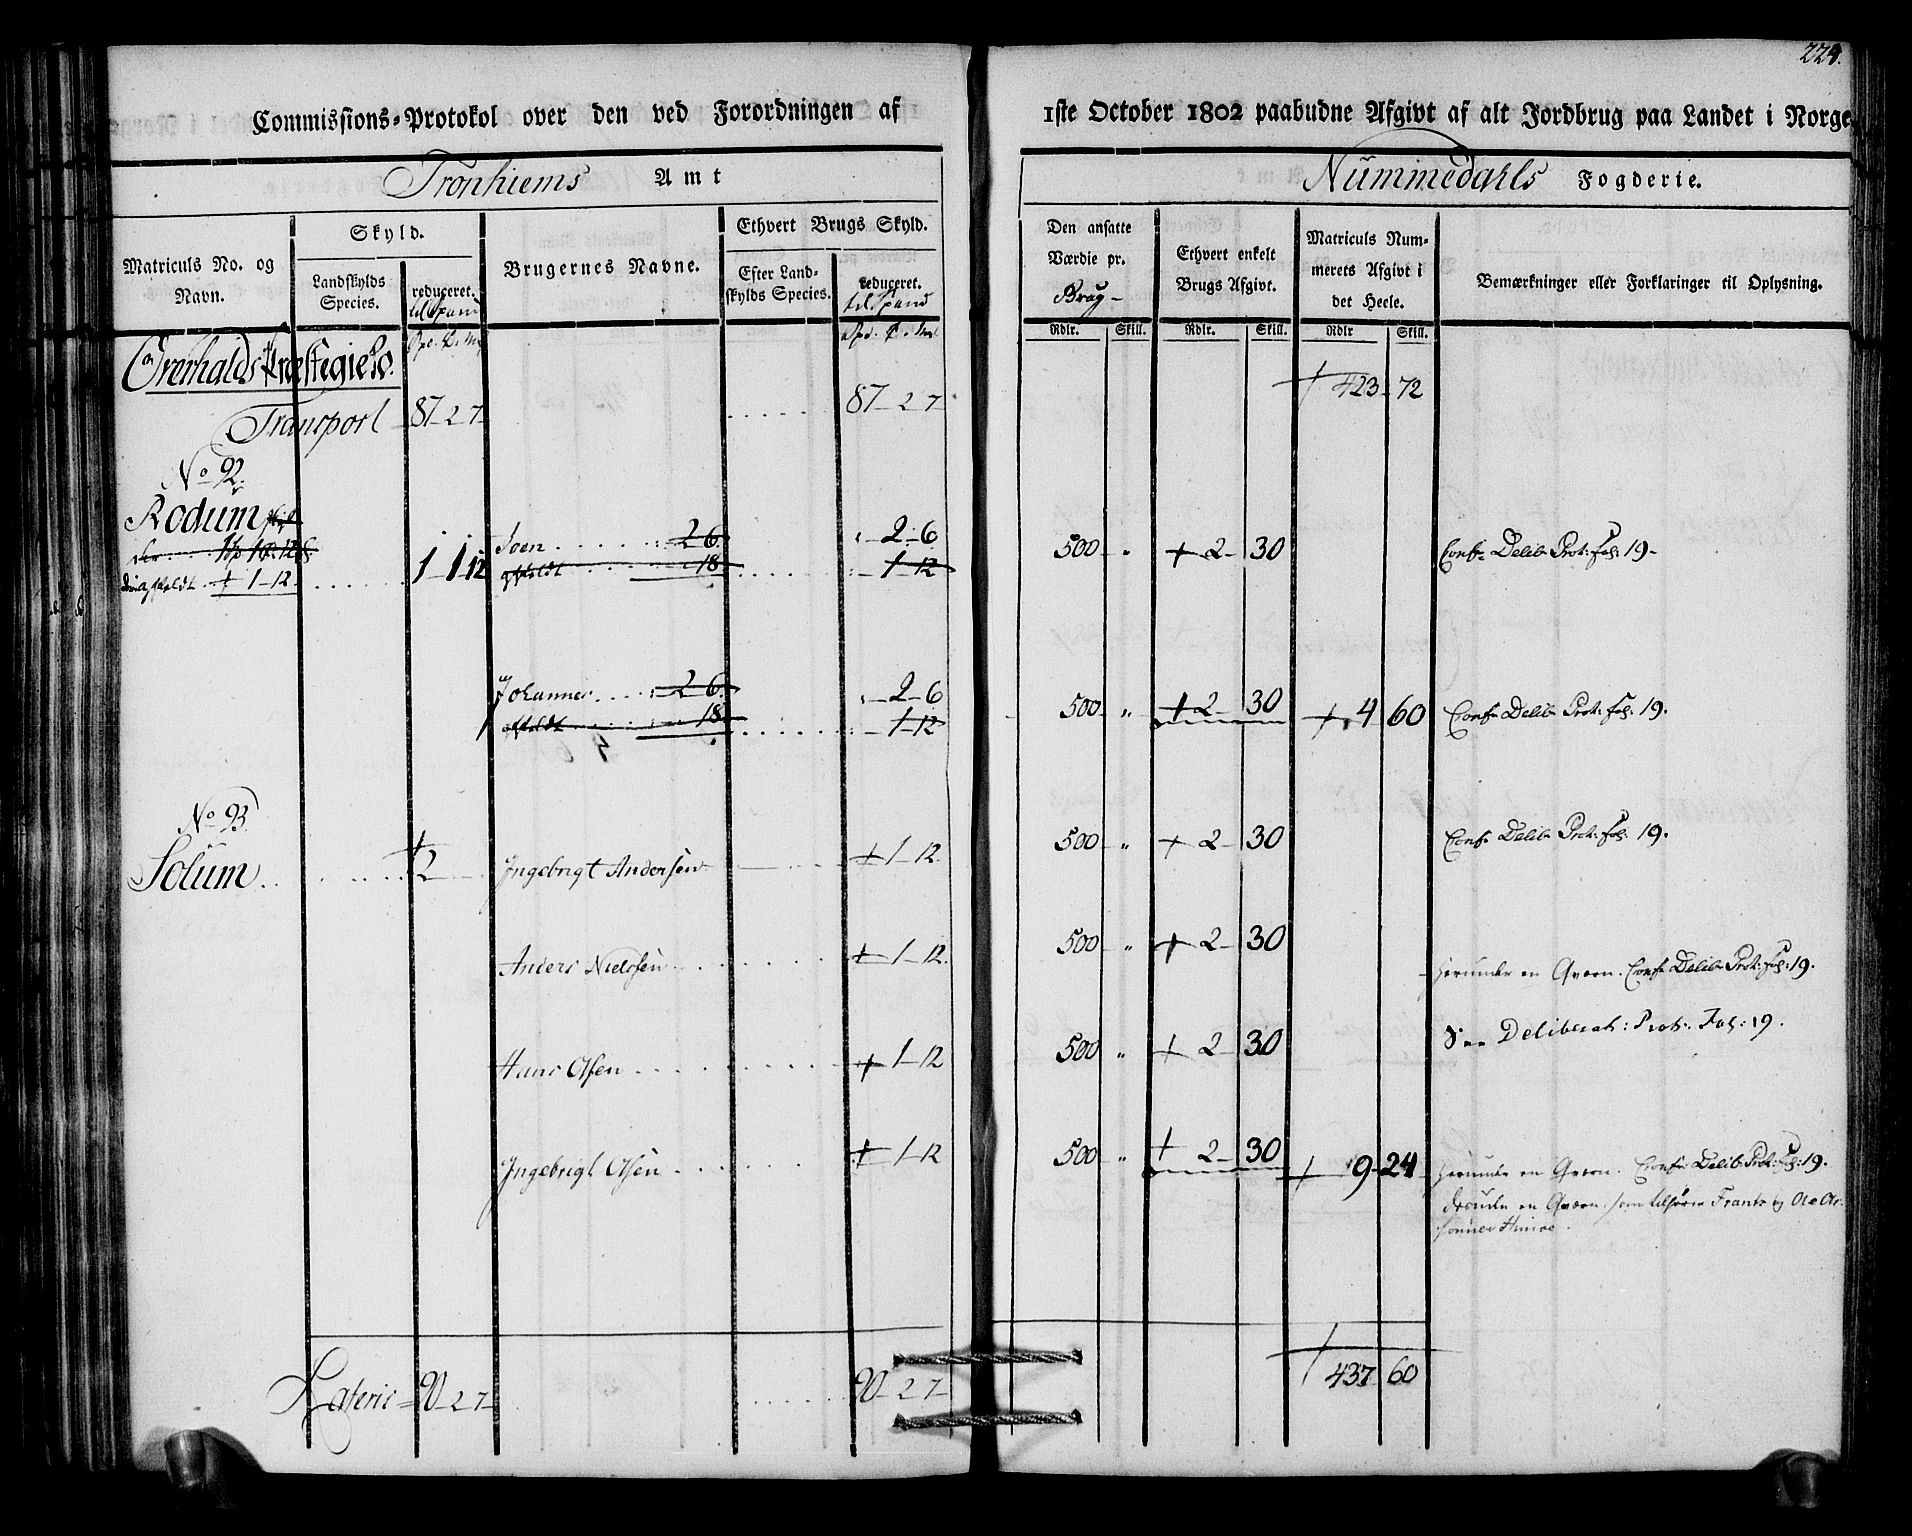 224.
Commissions-Protokol over den ved Forordningen af 1ste October 1802 paabudne Afgivt af alt Jordbrug paa Landet i Norge
Tronhiems Amt Nummedahls Fogderie.
Matriculs No. og Navn.
Skyld.
Landskylds Species.
reduceret. til Spand
Brugernes Navne.
Ethvert Brugs Skyld.
Efter Landskylds Species.
reduceret. til Spand
Den ansatte Værdie pr. Brug
Ethvert enkelt Brugs Afgivt.
Matriculs Nummerets Afgivt i det Heele.
Bemærkninger eller Forklaringer til Oplysning.
Rdlr. Skill. Rdlr. Skill. Rdlr Skill.
Overhalds Præstegield.
Transport 87 2 7 87 2 7 423 72
No 92.
Rodum
1 1 12 Joen 2 6 2 6 500 " 2 30 Conf: Delib: Prot: Fol: 19
affeldt 18 1 12
Johannes 2 6 2 6 500 " 2 30 4 60 Conf: Delib: Prot: Fol: 19.
affeldt 18 1 12
No 93.
Solum 2 Ingebrigt Andersen 1 12 500 " 2 30 Conf: Delib: Prot: Fol: 19.
Anders Nielssen 1 12. 500 " 2 30 herunder en Qværn. Conf: Delib: Prot: Fol: 19.
Hans Olsen 1 12 500 " 2 30 See Deliberat: Prot: Fol: 19.
Ingebrigt Olsen 1 12 500 " 2 30 9 24 herunder en Qværn. Conf: Delib: Prot: Fol: 19.
desuden en Qværn som tilhører Frants og Ole
Lateris 90 2 7 90 2 7 437 60